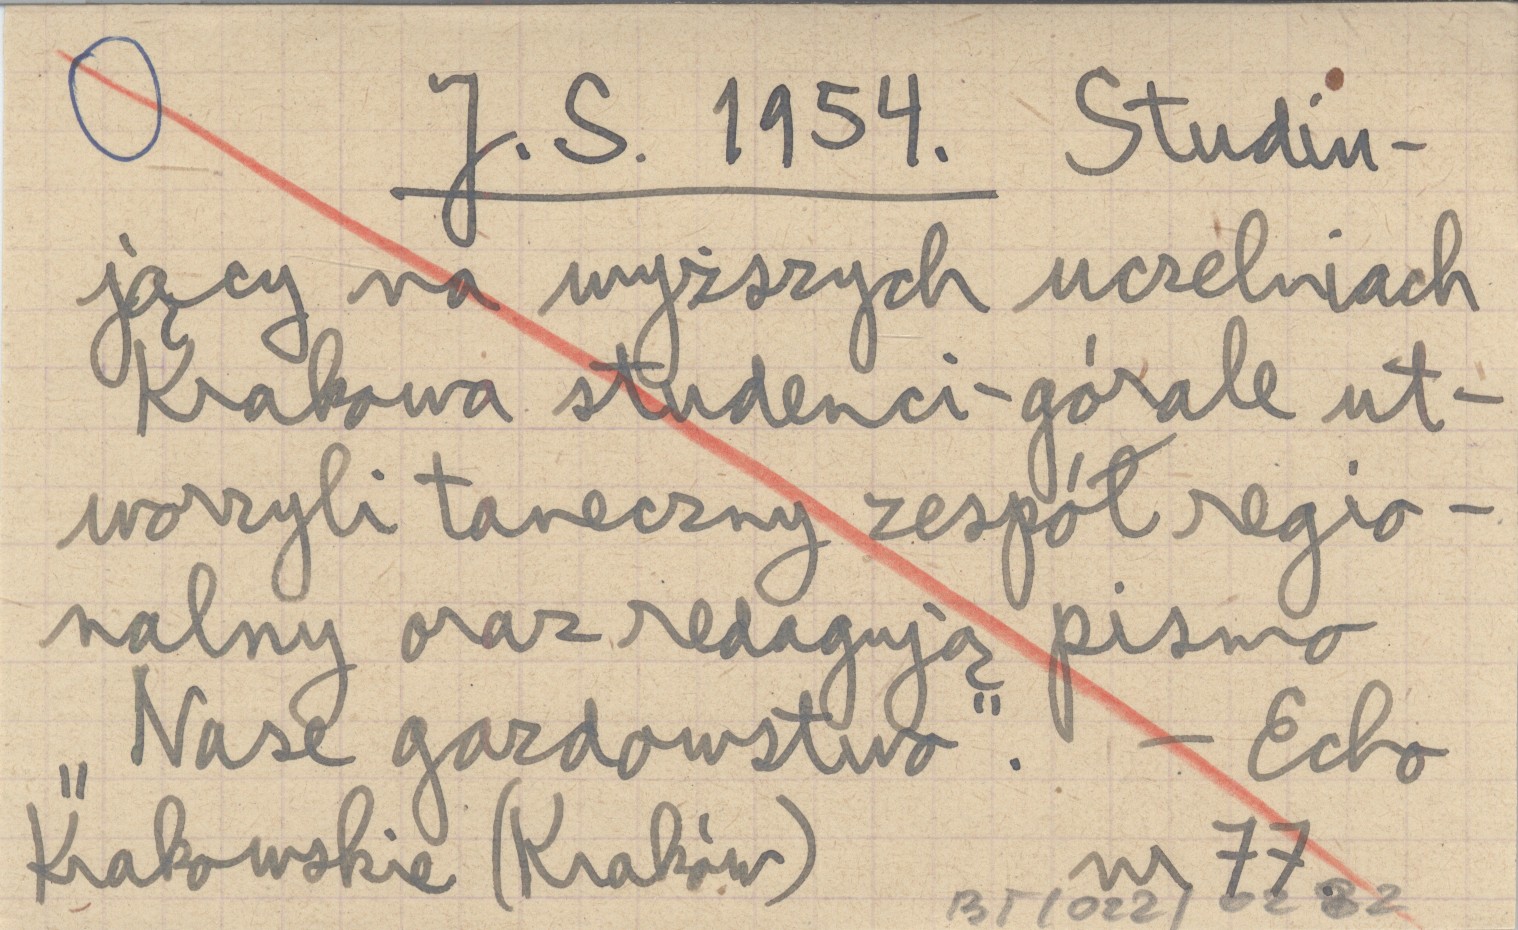 J. S. 1954. Studiu-
jący na wyższych uczelniach
Krakowa studenci-górale ut-
worzyli taneczny zespół regio-
nalny oraz redagują pismo
„Nase gazdowstwo". — Echo
Krakowskie (Kraków) nr 77.
BT (022) 02 82